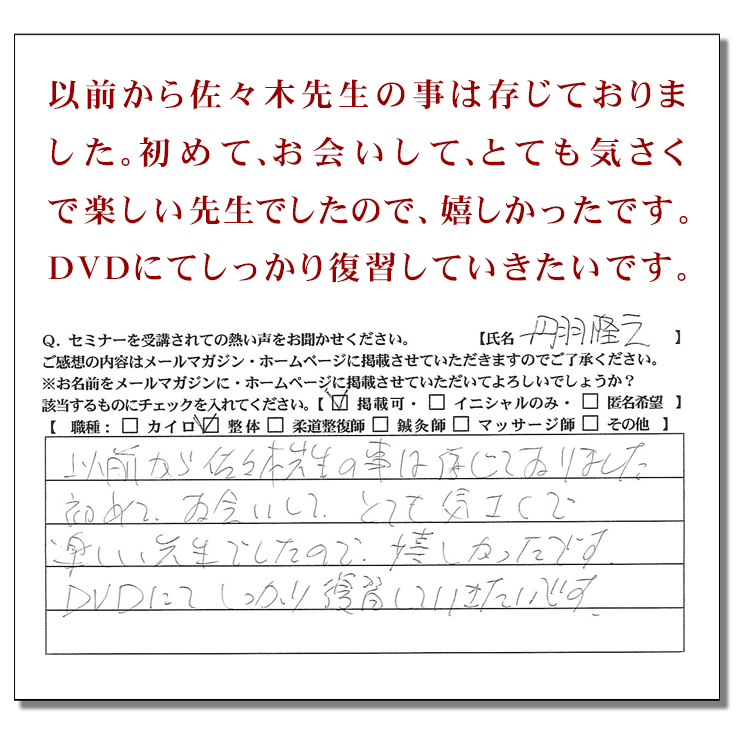 以前から佐々木先生の事は存じておりま
した。初めて、お会いして、とても気さく
で楽しい先生でしたので、嬉しかったです。
DVDにてしっかり復習していきたいです。
Q. セミナーを受講されての熱い声をお聞かせください。 【氏名 丹羽隆之 】
ご感想の内容はメールマガジン・ホームページに掲載させていただきますのでご了承ください。
※お名前をメールマガジンに・ホームページに掲載させていただいてよろしいでしょうか？
該当するものにチェックを入れてください。【 ☑ 掲載可・ □ イニシャルのみ・ □ 匿名希望 】
【 職種： □ カイロ ☑ 整体 □ 柔道整復師 □ 鍼灸師 □ マッサージ師 □ その他 】
以前から佐々木先生の事は存じておりました
初めて、お会いして、とても気さくで
楽しい先生でしたので、嬉しかったです。
DVDにてしっかり復習していきたいです。